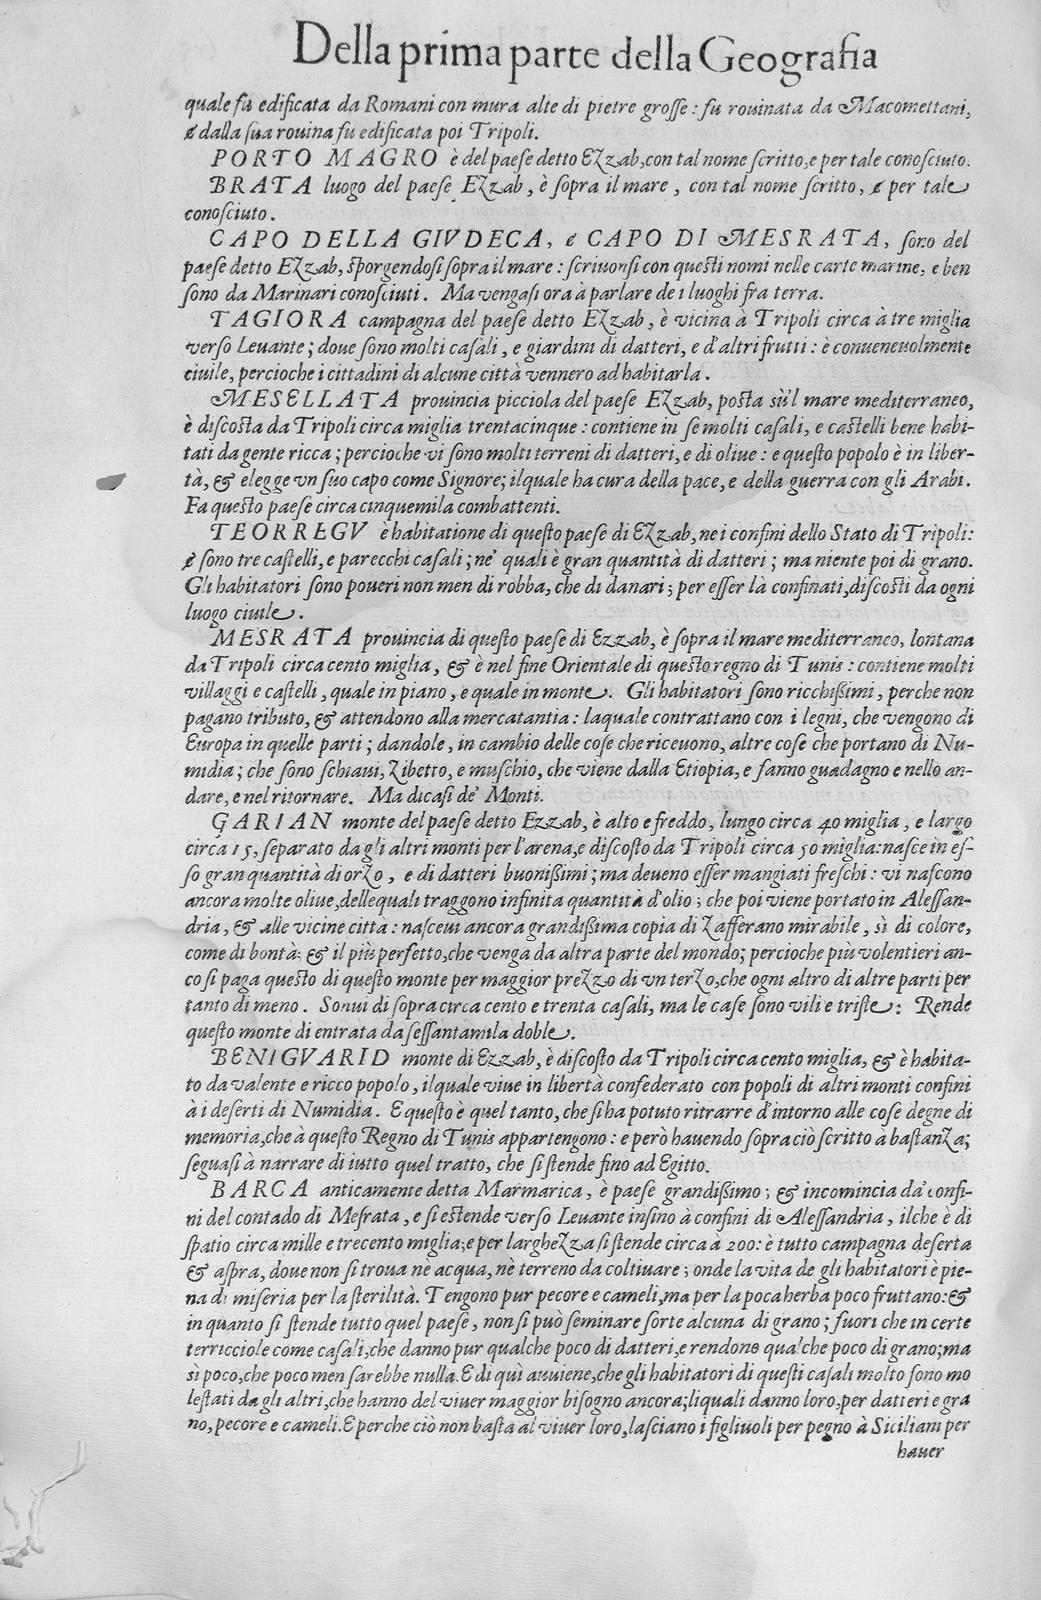 Della prima parte della Geografia
quale fù edificata da Romani con mura alte di pietre grosse: fu rouinata da Macomettani,
& dalla sua rouina fu edificata poi Tripoli.
PORTO MAGRO è del paese detto Ezzab, con tal nome scritto, e per tale conosciuto.
BRATA luogo del paese Ezzab, è sopra il mare, con tal nome scritto, & per tale
conosciuto.
CAPO DELLA GIVDECA, é CAPO DI MESRATA, sono del
paese detto Ezzab, sporgendosi sopra il mare: scriuonsi con questi nomi nelle carte marine, e ben
sono da Marinari conosciuti. Ma vengasi ora à parlare de i luoghi fra terra.
TAGIORA campagna del paese detto Ezzab, è vicina à Tripoli circa à tre miglia
verso Leuante; doue sono molti casali, e giardini di datteri, e d'altri frutti: è conueneuolmente
ciuile, percioche i cittadini di alcune città vennero ad habitarla.
MESELLATA prouincia picciola del paese Ezzab, posta sù'l mare mediterraneo,
è discosta da Tripoli circa miglia trentacinque: contiene in se molti casali, e castelli bene habi-
tati da gente ricca; percioche vi sono molti terreni di datteri, e di oliue: e questo popolo è in liber-
tà, & elegge vn suo capo come Signore; ilquale ha cura della pace, e della guerra con gli Arabi.
Fa questo paese circa cinquemila combattenti.
TEORREGV è habitatione di questo paese di Ezzab, ne i confini dello Stato di Tripoli:
& sono tre castelli, e parecchi casali; ne' quali è gran quantità di datteri; ma niente poi di grano.
Gli habitatori sono poueri non men di robba, che di danari; per esser là confinati, discosti da ogni
luogo ciuile.
MESRATA prouincia di questo paese di Ezzab, è sopra il mare mediterraneo, lontana
da Tripoli circa cento miglia, & è nel fine Orientale di questo regno di Tunis: contiene molti
villaggi e castelli, quale in piano, e quale in monte. Gli habitatori sono ricchißimi, perche non
pagano tributo, & attendono alla mercatantia: laquale contrattano con i legni, che vengono di
Europa in quelle parti; dandole, in cambio delle cose che riceuono, altre cose che portano di Nu-
midia; che sono schiaui, Zibetto, e muschio, che viene dalla Etiopia, e fanno guadagno e nello an-
dare, e nel ritornare. Ma dicasi de' Monti.
GARIAN monte del paese detto Ezzab, è alto e freddo, lungo circa 40 miglia, e largo
circa 15, separato da gli altri monti per l'arena, e discosto da Tripoli circa 50 miglia: nasce in es-
so gran quantità di orzo, e di datteri buonißimi; ma deueno esser mangiati freschi: vi nascono
ancora molte oliue, dellequali traggono infinita quantità d'olio; che poi viene portato in Alessan-
dria, & alle vicine città: nasceui ancora grandißima copia di Zafferano mirabile, sì di colore,
come di bontà: & il più perfetto, che venga da altra parte del mondo; percioche più volentieri an-
co si paga questo di questo monte per maggior prezzo di vn terzo, che ogni altro di altre parti per
tanto di meno. Sonui di sopra circa cento e trenta casali, ma le case sono vili e triste: Rende
questo monte di entrata da sessantamila doble.
BENIGVARID monte di Ezzab, è discosto da Tripoli circa cento miglia, & è habita-
to da valente e ricco popolo, ilquale viue in libertà confederato con popoli di altri monti confini
à i deserti di Numidia. E questo è quel tanto, che si ha potuto ritrarre d'intorno alle cose degne di
memoria, che à questo Regno di Tunis appartengono: e però hauendo sopra ciò scritto à bastanza;
seguasi à narrare di tutto quel tratto, che si stende fino ad Egitto.
BARCA anticamente detta Marmarica, è paese grandißimo; & incomincia da' confi-
ni del contado di Mesrata, e si estende verso Leuante insino à confini di Alessandria, ilche è di
spatio circa mille e trecento miglia; e per larghezza si stende circa à 200: è tutto campagna deserta
& aspra, doue non si troua nè acqua, nè terreno da coltiuare; onde la vita de gli habitatori è pie-
na di miseria per la sterilità. Tengono pur pecore e cameli, ma per la poca herba poco fruttano: &
in quanto si stende tutto quel paese, non si può seminare sorte alcuna di grano; fuori che in certe
terricciole come casali, che danno pur qualche poco di datteri, e rendono qualche poco di grano; ma
sì poco, che poco men sarebbe nulla. E di quì auuiene, che gli habitatori di questi casali molto sono mo
lestati da gli altri, che hanno del viuer maggior bisogno ancora; liquali danno loro, per datteri e gra
no, pecore e cameli. E perche ciò non basta al viuer loro, lasciano i figliuoli per pegno à Siciliani per
hauer